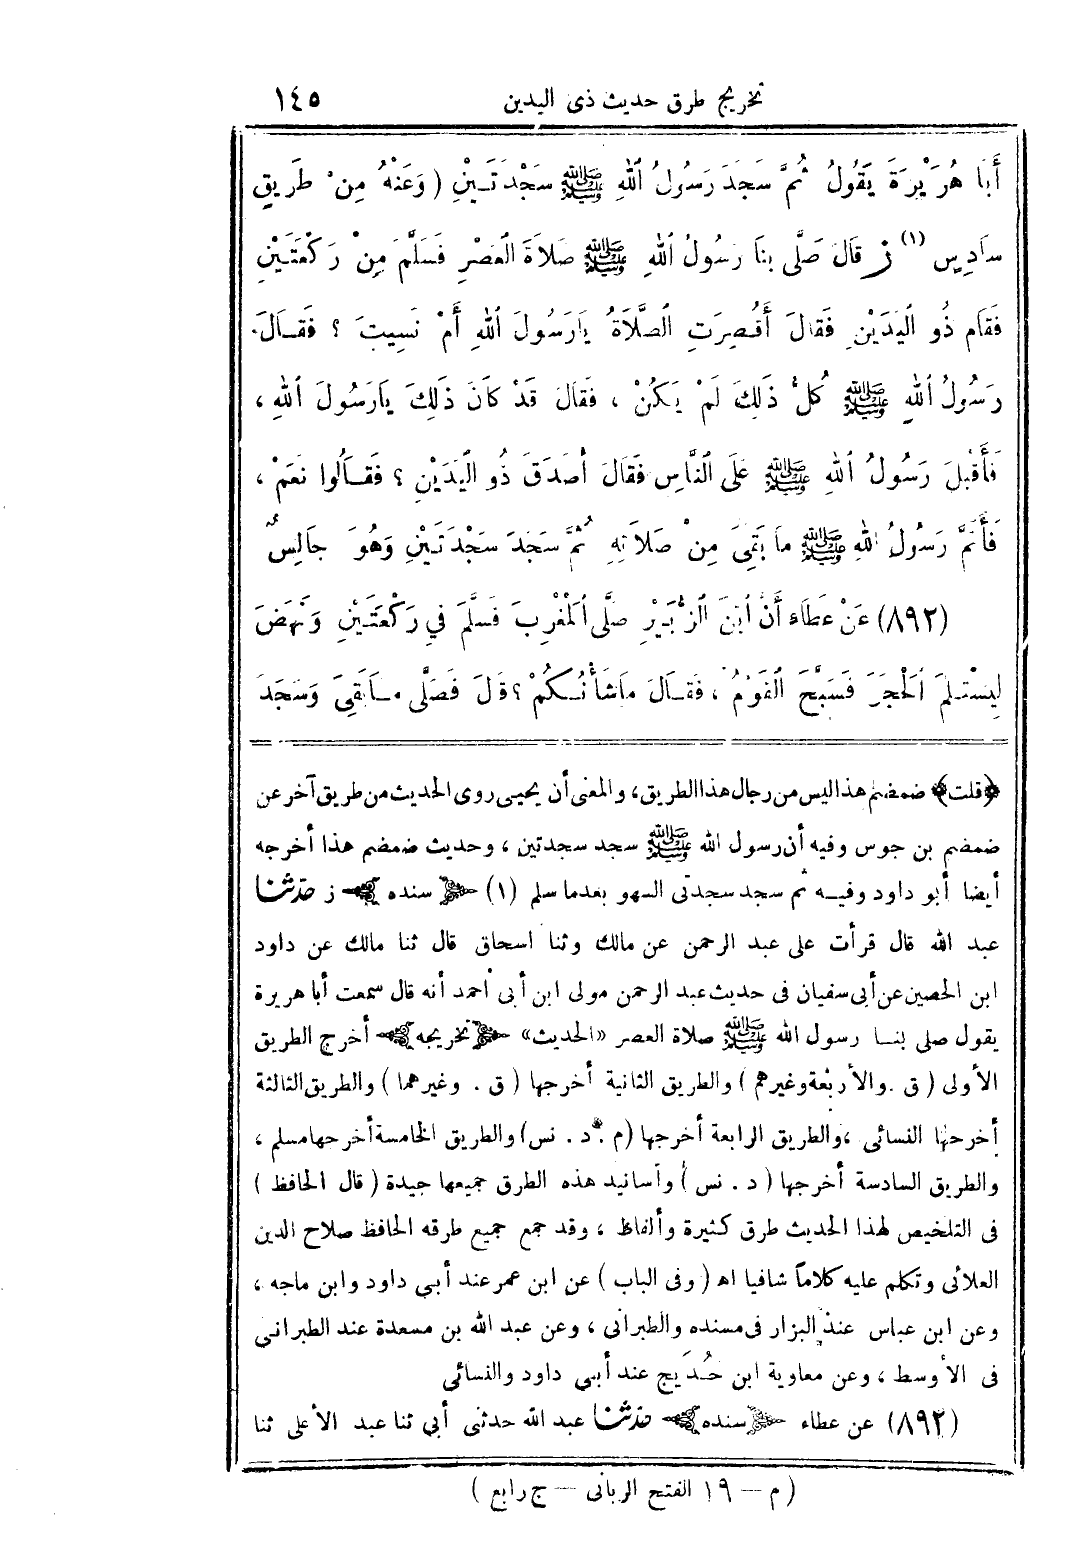 تخريج طرق حديث ذى اليدين ١٤٥
أَبَا هُرَيْرَةَ يَقُولُ ثُمَّ سَجَدَ رَسُولُ اللهِ ﷺ سَجْدَتَيْنِ (وَعَنْهُ مِنْ طَرِيقٍ
سَادِسٍ (١) ز قَالَ صَلَّى بِنَا رَسُولُ اللهِ ﷺ صَلَاةَ الْعَصْرِ فَسَلَّمَ مِنْ رَكْعَتَيْنِ
فَقَامَ ذُو الْيَدَيْنِ فَقَالَ أَقُصِرَتِ الصَّلَاةُ يَارَسُولَ اللهِ أَمْ نَسِيتَ ؟ فَقَالَ
رَسُولُ اللهِ ﷺ كُلُّ ذَلِكَ لَمْ يَكُنْ ، فَقَالَ قَدْ كَانَ ذَلِكَ يَارَسُولَ اللهِ ،
فَأَقْبَلَ رَسُولُ اللهِ ﷺ عَلَى النَّاسِ فَقَالَ أَصَدَقَ ذُو الْيَدَيْنِ ؟ فَقَالُوا نَعَمْ ،
فَأَتَمَّ رَسُولُ اللهِ ﷺ مَا بَقِىَ مِنْ صَلَاتِهِ ثُمَّ سَجَدَ سَجْدَتَيْنِ وَهُوَ جَالِسٌ
(٨٩٢) عَنْ عَطَاءٍ أَنَّ ابْنَ الزُّبَيْرِ صَلَّى الْمَغْرِبَ فَسَلَّمَ فِي رَكْعَتَيْنِ وَنَهَضَ
لِيَسْتَلِمَ الْحَجَرَ فَسَبَّحَ الْقَوْمُ ، فَقَالَ مَاشَأْنُكُمْ ؟ قَالَ فَصَلَّى مَابَقِىَ وَسَجَدَ
﴿قلت﴾ ضمضم هذا ليس من رجال هذا الطريق، والمعنى أن يحيى روى الحديث من طريق آخر عن
ضمضم بن جوس وفيه أن رسول الله ﷺ سجد سجدتين ، وحديث ضمضم هذا أخرجه
أيضا أبو داود وفيه ثم سجد سجدتى السهو بعدما سلم (١) ﴿سنده﴾ ز حدثنا
عبد الله قال قرأت على عبد الرحمن عن مالك وثنا اسحاق قال ثنا مالك عن داود
ابن الحصين عن أبى سفيان فى حديث عبد الرحمن مولى ابن أبى أحمد أنه قال سمعت أبا هريرة
يقول صلى بنا رسول الله ﷺ صلاة العصر «الحديث» ﴿تخريجه﴾ أخرج الطريق
الأولى (ق . والأربعة وغيرهم) والطريق الثانية أخرجها (ق . وغيرهما) والطريق الثالثة
أخرجها النسائى ، والطريق الرابعة أخرجها (م . د . نس) والطريق الخامسة أخرجها مسلم ،
والطريق السادسة أخرجها (د . نس) وأسانيد هذه الطرق جميعها جيدة (قال الحافظ)
فى التلخيص لهذا الحديث طرق كثيرة وألفاظ ، وقد جمع جميع طرقه الحافظ صلاح الدين
العلائى وتكلم عليه كلاماً شافيا اه (وفى الباب) عن ابن عمر عند أبى داود وابن ماجه ،
وعن ابن عباس عند البزار فى مسنده والطبرانى ، وعن عبد الله بن مسعدة عند الطبرانى
فى الأوسط ، وعن معاوية ابن حُدَيج عند أبى داود والنسائى
(٨٩٢) عن عطاء ﴿سنده﴾ حدثنا عبد الله حدثنى أبى ثنا عبد الأعلى ثنا
(م – ١٩ الفتح الربانى – ج رابع)